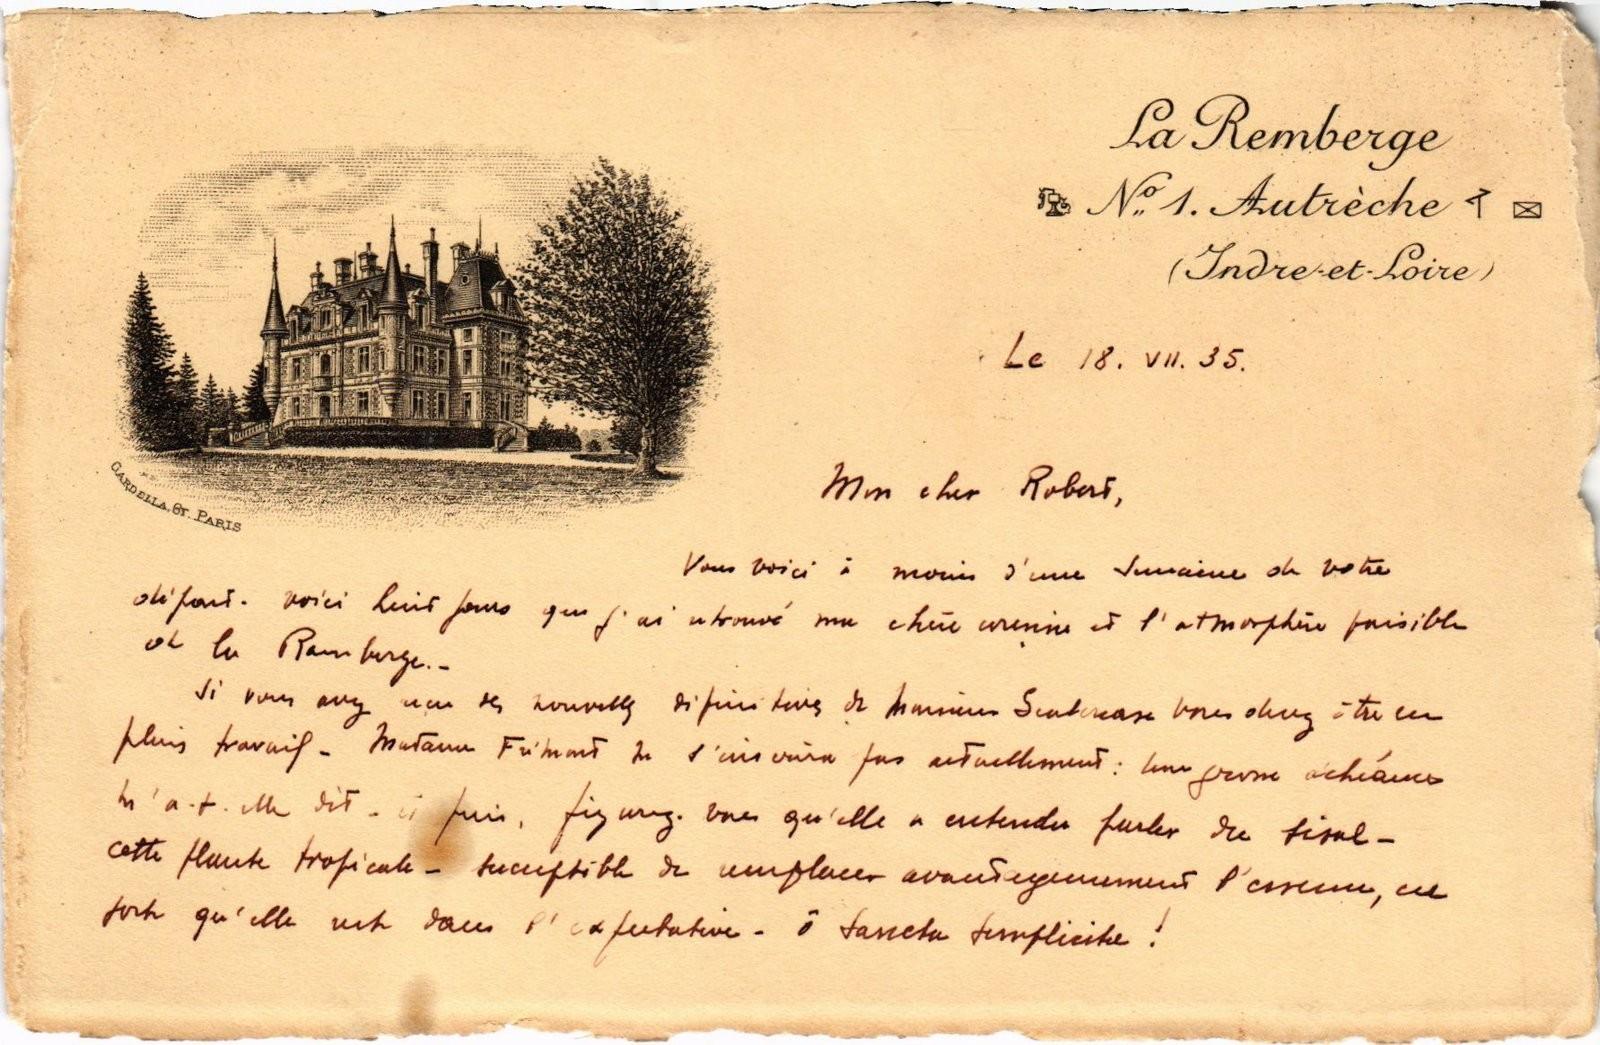 La Remberge
N° 1. Autrèche
(Indre-et-Loire)
GARDELLA. Gr. PARIS
Le 18. VII. 35.
Mon cher Robert,
Vous voici à moins d'une semaine de votre
départ. voici huit jours que j'ai retrouvé ma chère et l'atmosphère paisible
de la Remberge.-
Si vous avez des nouvelles définitives de Monsieur vous devez être en
plein travail - Madame Frémont ne s'inscrira pas actuellement : une grosse échéance
m'a-t-elle dit - et puis, figurez-vous qu'elle a entendu parler du sisal -
cette plante tropicale - suceptible de remplacer avantageusement l'essence, en
sorte qu'elle reste dans l'expectative - ô Sancta Simplicite !